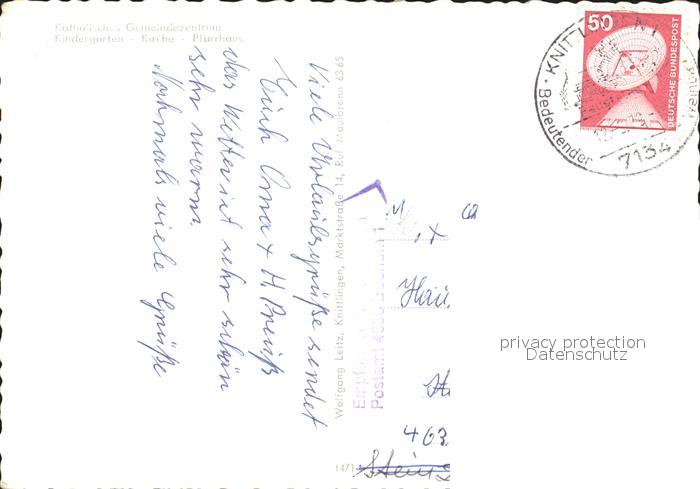 Katholisches Gemeindezentrum
Kindergarten - Kirche - Pfarrhaus
Viele Urlaubsgrüße sendet
Euch Oma + H. Preiß
das Wetter ist sehr schön
sehr warm.
Nochmals viele Grüße
Wolfgang Leitz, Knittlingen, Marktstraße 14, Ruf Maulbronn 6365
1471
50
DEUTSCHE BUNDESPOST
KNITTLINGEN
Bedeutender
7134
Postamt 4630
463
privacy protection
Datenschutz